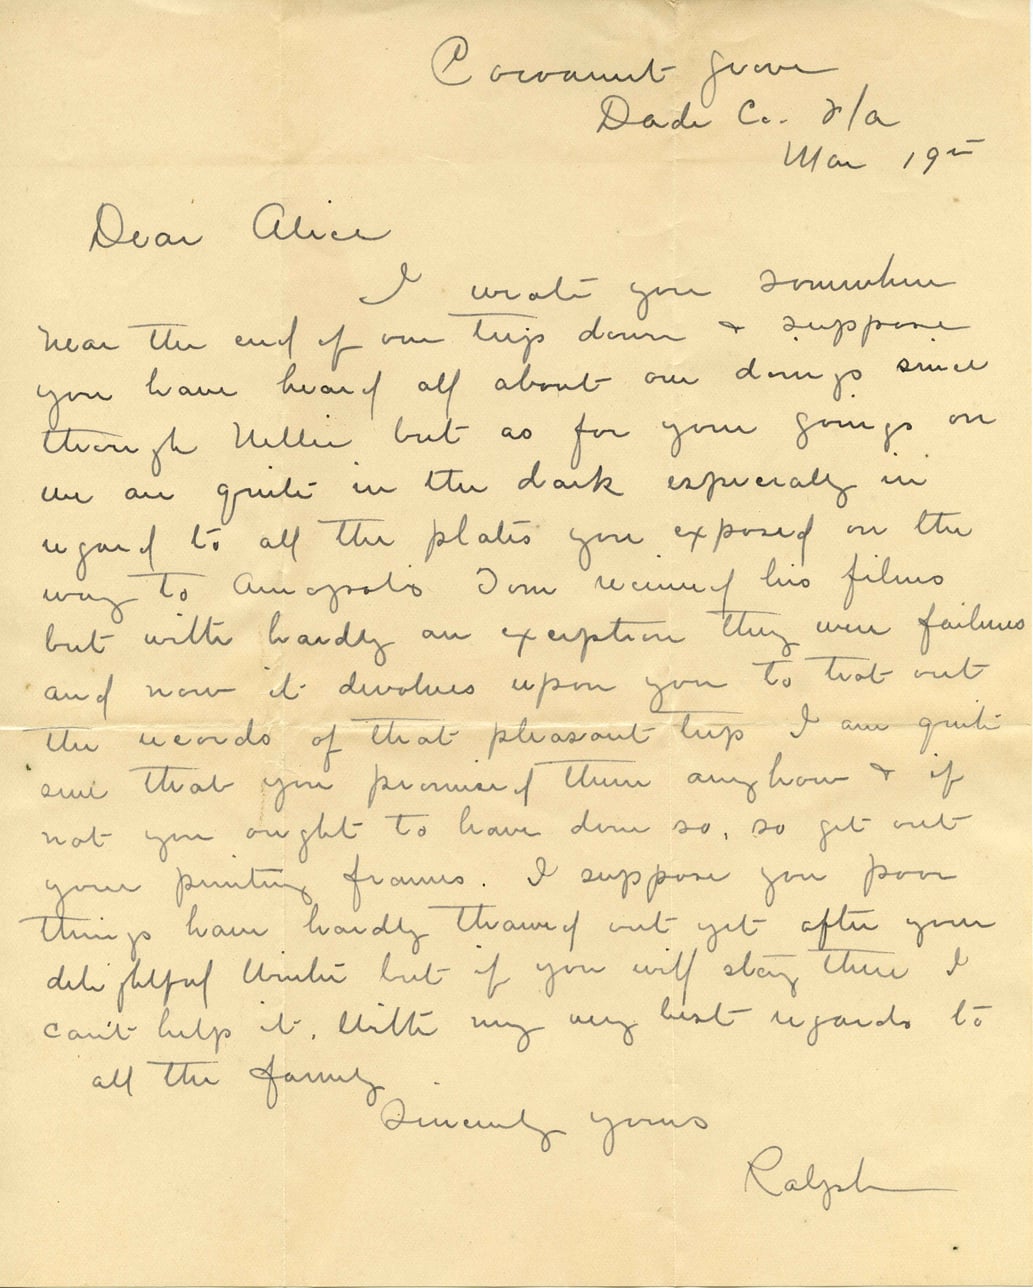 Cocoanut Grove
Dade Co. Fla
Mar 19th
Dear Alice
I wrote you somewhere
near the end of our trip down & suppose
you have heard all about our doings since
through Nellie but as for your goings on
we are quite in the dark especially in
regard to all the plates you exposed on the
way to Annapolis Tom received his films
but with hardly an exception they were failures
and now it devolves upon you to trot out
the records of that pleasant trip I am quite
sure that you promised them anyhow & if
not you ought to have done so, so get out
your printing frames. I suppose you poor
things have hardly thawed out yet after your
delightful Winter but if you will stay there I
can't help it. With my very best regards to
all the family.
Sincerely yours
Ralph